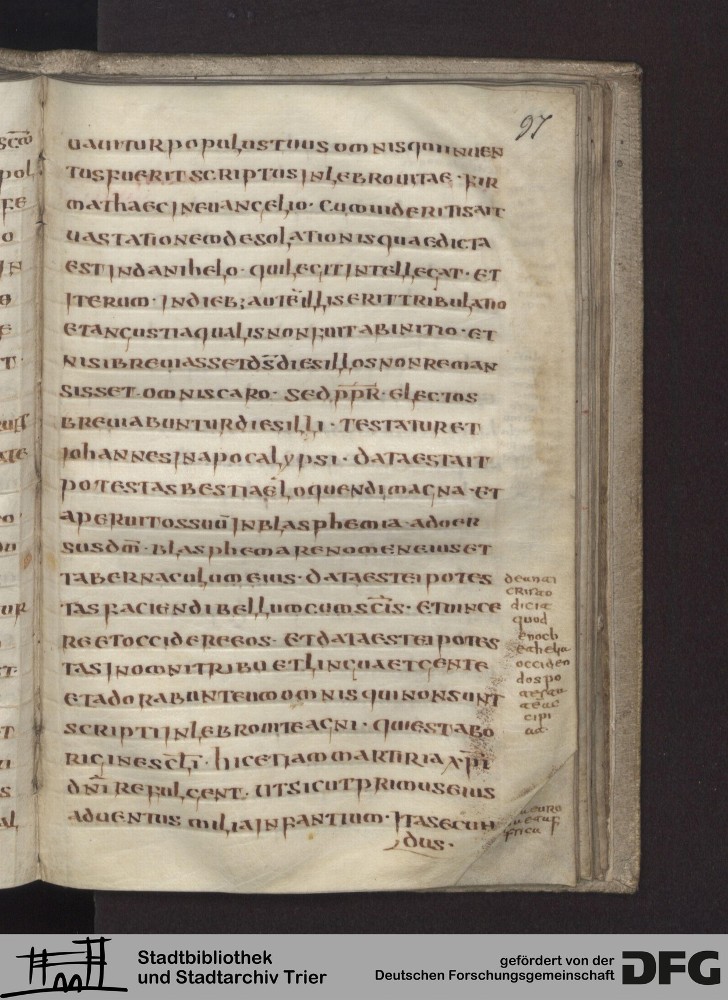 97
uauitur populus tuus omnis qui inuen
tus fuerit scriptus in lebro uitae · fir
mat haec in euangelio · cum uideritis ait
uastationem desolationis quae dicta
est in danihelo · qui legit intellegat · et
iterum · in dieb; autē illis erit tribulatio
et angustia qualis non fuit ab initio · et
nisi breuiasset d̄s dies illos non reman
sisset omnis caro · sed p̄p̄r · electos
breuiabuntur dies illi · testatur et
iohannes in apocalypsi · data est ait
potestas bestiae loquendi magna · et
aperuit os suū in blasphemia aduer
sus dm̄ · blasphemare nomen eius et
tabernaculum eius · data est ei potes
tas faciendi bellum cum sc̄is · et uince
re et occidere eos · et data est ei potes
tas in omni tribu et lingua et gente
et adorabunt eum omnis qui non sunt
scripti in lebro uite agni · qui est ab o
rigine sc̄li · hic etiam martiria x̄pi
dn̄i refulgent · ut sicut primus eius
aduentus milia infantium · ita secun
dus ·
de anti
cristo
dicit
quod
enoch
et helia
occiden
dos po
testa
cipi
at
Stadtbibliothek
und Stadtarchiv Trier
gefördert von der
Deutschen Forschungsgemeinschaft
DFG